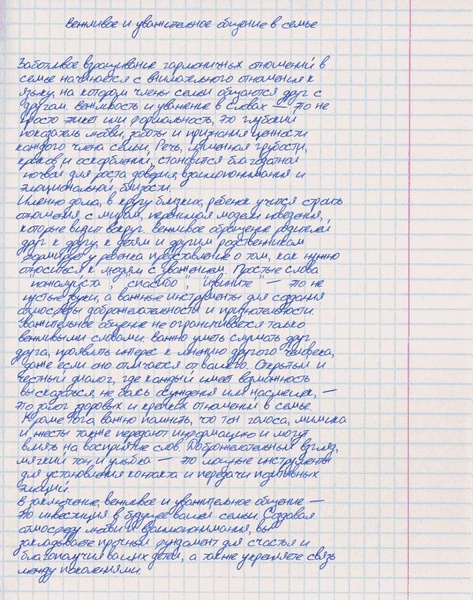 Вежливое и уважительное общение в семье
Заботливое взращивание гармоничных отношений в
семье начинается с внимательного отношения к
языку, на котором члены семьи общаются друг с
другом. Вежливость и уважение в словах — это не
просто этикет или формальность, это глубокий
показатель любви, заботы и признания ценности
каждого члена семьи. Речь, лишенная грубости,
криков и оскорблений, становится благодатной
почвой для роста доверия, взаимопонимания и
эмоциональной близости.
Именно дома, в кругу близких, ребенок учится строить
отношения с миром, перенимая модели поведения,
которые видит вокруг. Вежливое обращение родителей
друг к другу, к детям и другим родственникам
формирует у ребенка представление о том, как нужно
относиться к людям с уважением. Простые слова
"пожалуйста", "спасибо", "извините" — это не
пустые звуки, а важные инструменты для создания
атмосферы доброжелательности и признательности.
Уважительное общение не ограничивается только
вежливыми словами. Важно уметь слушать друг
друга, проявлять интерес к мнению другого человека,
даже если оно отличается от вашего. Открытый и
честный диалог, где каждый имеет возможность
высказаться, не боясь осуждения или насмешек, —
это залог здоровых и крепких отношений в семье.
Кроме того, важно помнить, что тон голоса, мимика
и жесты также передают информацию и могут
влиять на восприятие слов. Доброжелательный взгляд,
мягкий тон и улыбка — это мощные инструменты
для установления контакта и передачи позитивных
эмоций.
В заключение, вежливое и уважительное общение —
это инвестиция в будущее вашей семьи. Создавая
атмосферу любви и взаимопонимания, вы
закладываете прочный фундамент для счастья и
благополучия ваших детей, а также укрепляете связь
между поколениями.